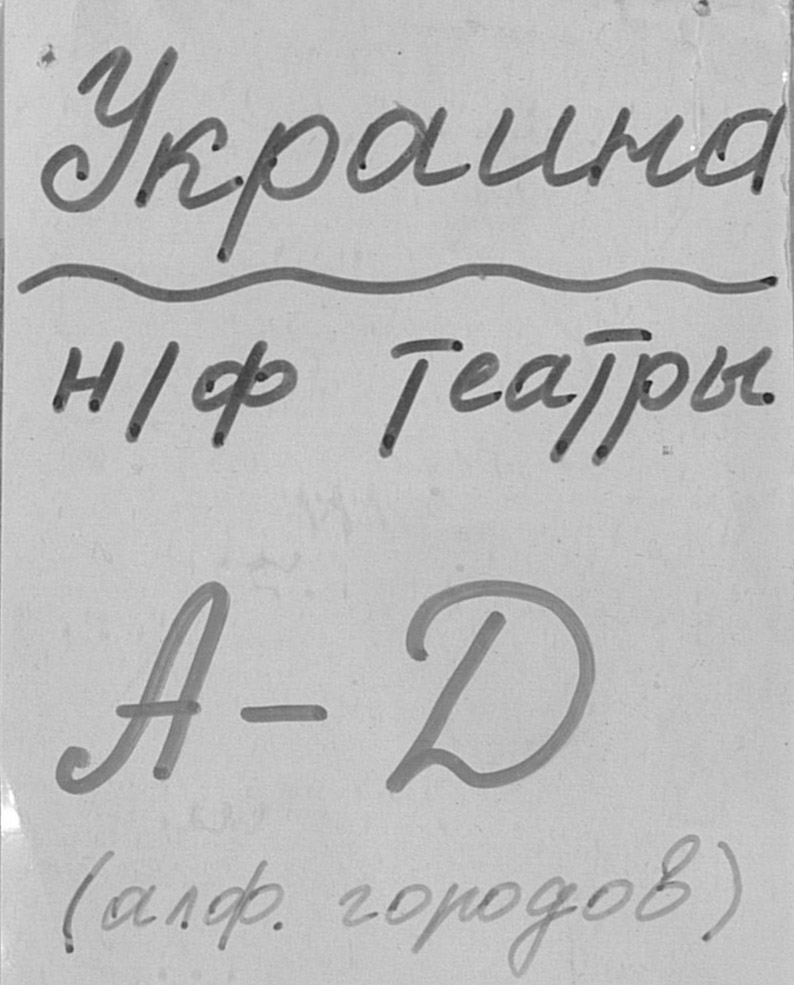 Украина
н/ф театры
А-D
(алф. городов)